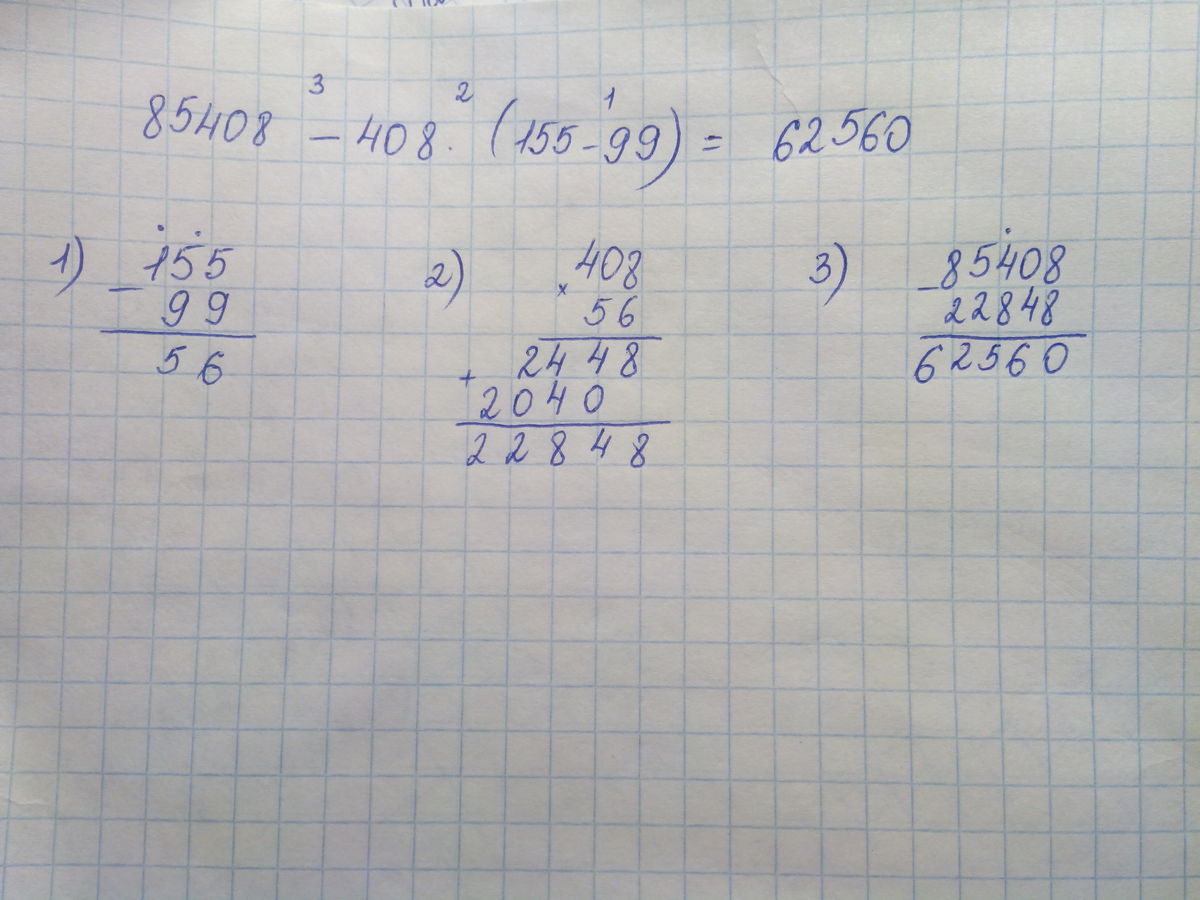 3 2 1
85408 - 408 · (155 - 99) = 62560
1) 155
- 99
56
2) 408
× 56
2448
+
2040
22848
3) 85408
- 22848
62560